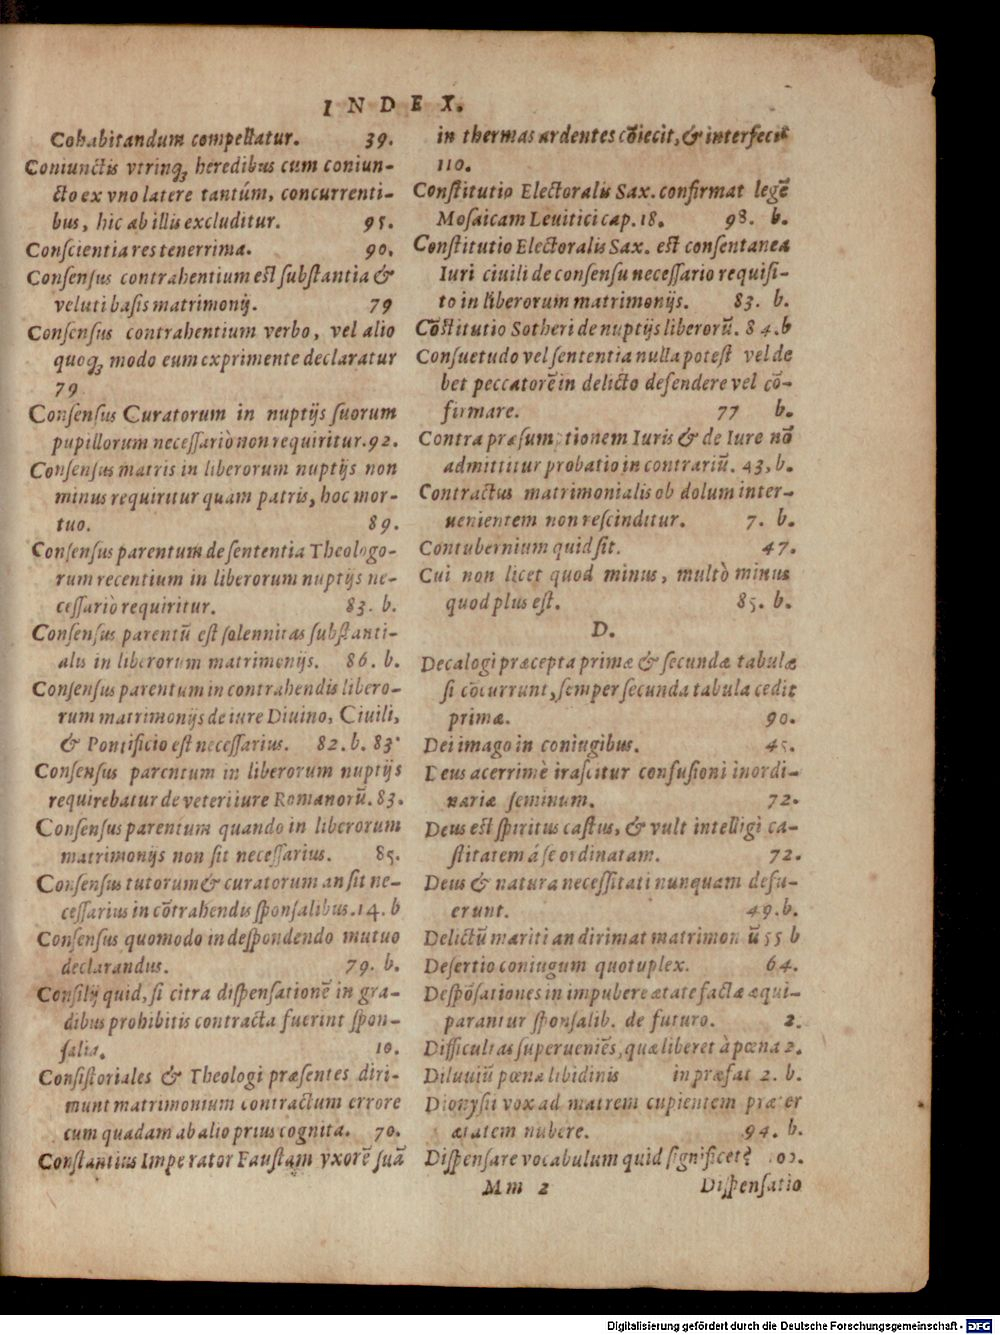 INDEX.
Cohabitandum compellatur. 39.
Coniunctis vtrinqꝫ heredibus cum coniun-
cto ex vno latere tantúm, concurrenti-
bus, hic ab illis excluditur. 95.
Conscientia res tenerrima. 90.
Consensus contrahentium est substantia &
veluti basis matrimonij. 79
Consensus contrahentium verbo, vel alio
quoqꝫ modo eum exprimente declaratur
79
Consensus Curatorum in nuptijs suorum
pupillorum necessariò non requiritur. 92.
Consensus matris in liberorum nuptijs non
minus requiritur quam patris, hoc mor-
tuo. 89.
Consensus parentum de sententia Theologo-
rum recentium in liberorum nuptijs ne-
cessariò requiritur. 83. b.
Consensus parentū est solennitas substanti-
alis in liberorum matrimonijs. 86. b.
Consensus parentum in contrahendis libero-
rum matrimonijs de iure Diuino, Ciuili,
& Pontificio est necessarius. 82. b. 83.
Consensus parentum in liberorum nuptijs
requirebatur de veteri iure Romanorū. 83.
Consensus parentum quando in liberorum
matrimonijs non sit necessarius. 85.
Consensus tutorum & curatorum an sit ne-
cessarius in cōtrahendis sponsalibus. 14. b
Consensus quomodo in despondendo mutuo
declarandus. 79. b.
Consilij quid, si citra dispensationē in gra-
dibus prohibitis contracta fuerint spon-
salia. 10.
Consistoriales & Theologi præsentes diri-
munt matrimonium contractum errore
cum quadam ab alio prius cognita. 70.
Constantius Imperator Faustam vxorē suā
in thermas ardentes cōiecit, & interfecit
110.
Constitutio Electoralis Sax. confirmat legē
Mosaicam Leuitici cap. 18. 98. b.
Constitutio Electoralis Sax. est consentanea
Iuri ciuili de consensu necessario requisi-
to in liberorum matrimonijs. 83. b.
Cōstitutio Sotheri de nuptijs liberorū. 84. b
Consuetudo vel sententia nulla potest vel de
bet peccatorē in delicto defendere vel cō-
firmare. 77 b.
Contra præsumptionem Iuris & de Iure nō
admittitur probatio in contrariū. 43, b.
Contractus matrimonialis ob dolum inter-
uenientem non rescinditur. 7. b.
Contubernium quid sit. 47.
Cui non licet quod minus, multò minus
quod plus est. 85. b.
D.
Decalogi præcepta primæ & secundæ tabulæ
si cōcurrunt, semper secunda tabula cedit
primæ. 90.
Dei imago in coniugibus. 45.
Deus acerrimè irascitur confusioni inordi-
nariæ seminum. 72.
Deus est spiritus castus, & vult intelligi ca-
stitatem á se ordinatam. 72.
Deus & natura necessitati nunquam defu-
erunt. 49. b.
Delictū mariti an dirimat matrimon ū 55 b
Desertio coniugum quotuplex. 64.
Despōsationes in impubere ætate factæ æqui-
parantur sponsalib. de futuro. 2.
Difficultas superueniēs, quæ liberet à pœna 2.
Diluuiū pœna libidinis in præfat 2. b.
Dionysii vox ad matrem cupientem præter
ætatem nubere. 94. b.
Dispensare vocabulum quid significet?
Mm 2 Dispensatio
Digitalisierung gefördert durch die Deutsche Forschungsgemeinschaft - DFG